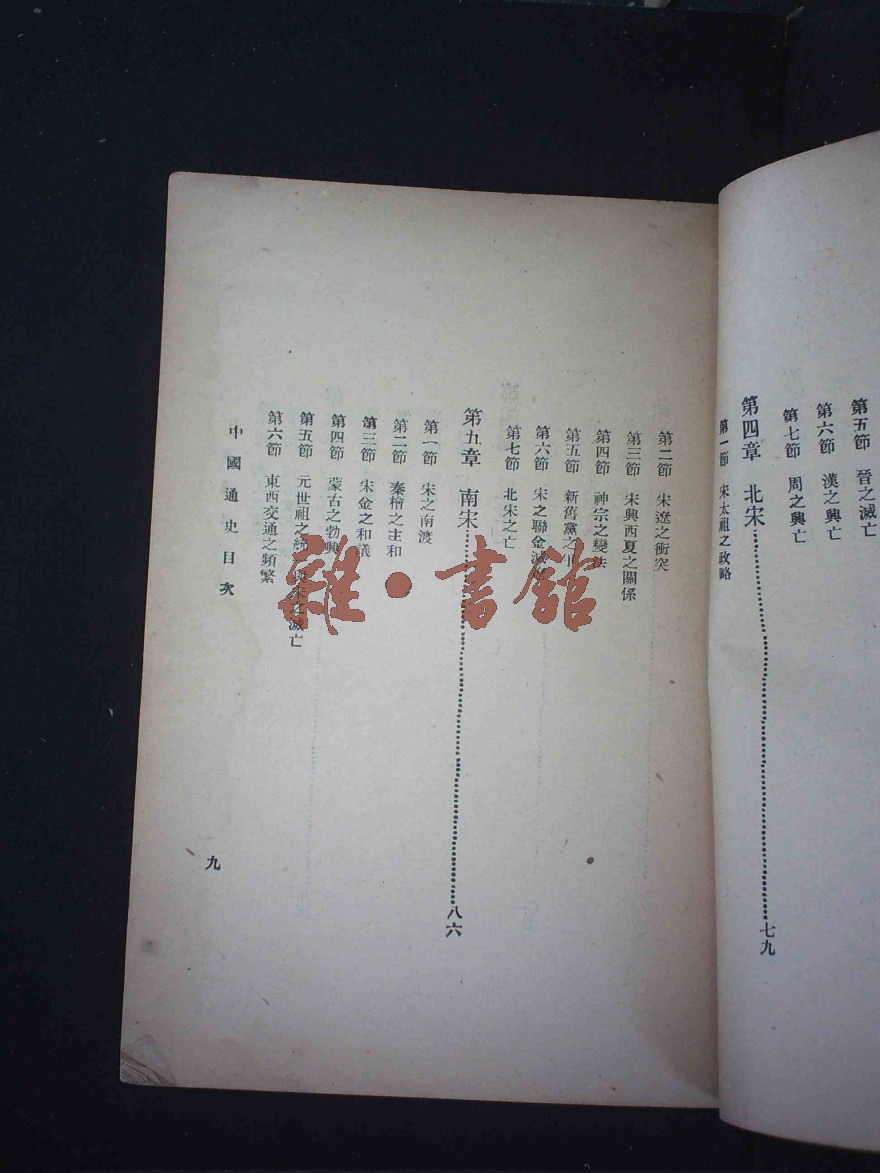 第五節　晉之滅亡
第六節　漢之興亡
第七節　周之興亡
第四章　北宋……………七九
第一節　宋太祖之政略
第二節　宋遼之衝突
第三節　宋與西夏之關係
第四節　神宗之變法
第五節　新舊黨之
第六節　宋之聯金滅
第七節　北宋之亡
第九章　南宋……………八六
第一節　宋之南渡
第二節　秦檜之主和
第三節　宋金之和議
第四節　蒙古之勃興
第五節　元世祖之　宋之滅亡
第六節　東西交通之頻繁
中國通史目次
九
雜·書館